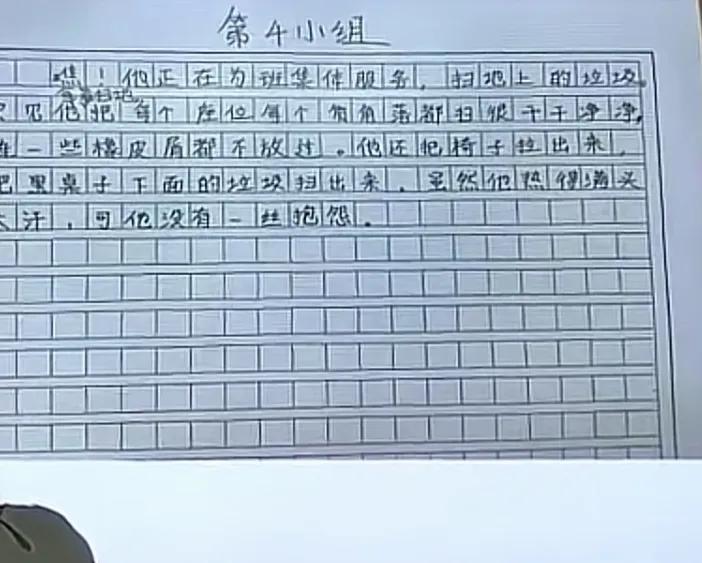 第4小组
瞧！他正在为班集体服务，扫地上的垃圾。
扫地
只见他把每个座位每个角角落都扫很干干净净，
连一些橡皮屑都不放过。他还把椅子拉出来，
把桌子下面的垃圾扫出来，虽然他热得满头
大汗，可他没有一丝抱怨。